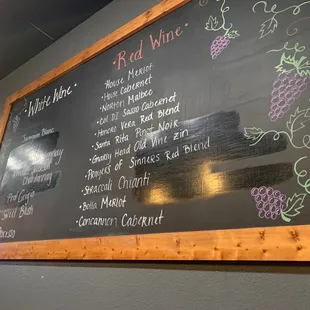 White Wine
Sauvignon Blanc
Chardonnay
Pinot Grigio
Sweet Blush
Prosecco
Red Wine
House Merlot
House Cabernet
Norton Malbec
Col Di Sasso Cabernet
Honoro Vera Red Blend
Santa Rita Pinot Noir
Gnarly Head Old Vine Zin
Prayers of Sinners Red Blend
Straccali Chianti
Bolla Merlot
Concannon Cabernet